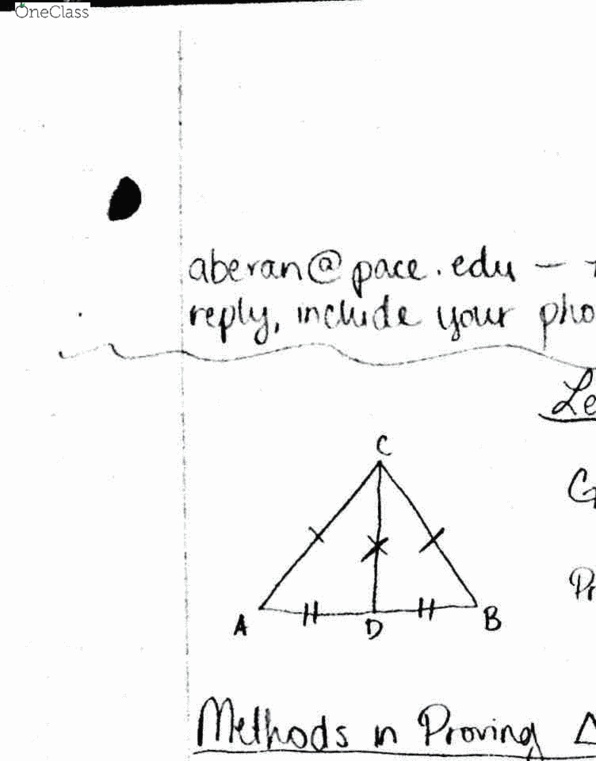 OneClass
aberan@pace.edu –
reply, include your pho
Le
C
A
D
B
Pr
Methods in Proving Δ